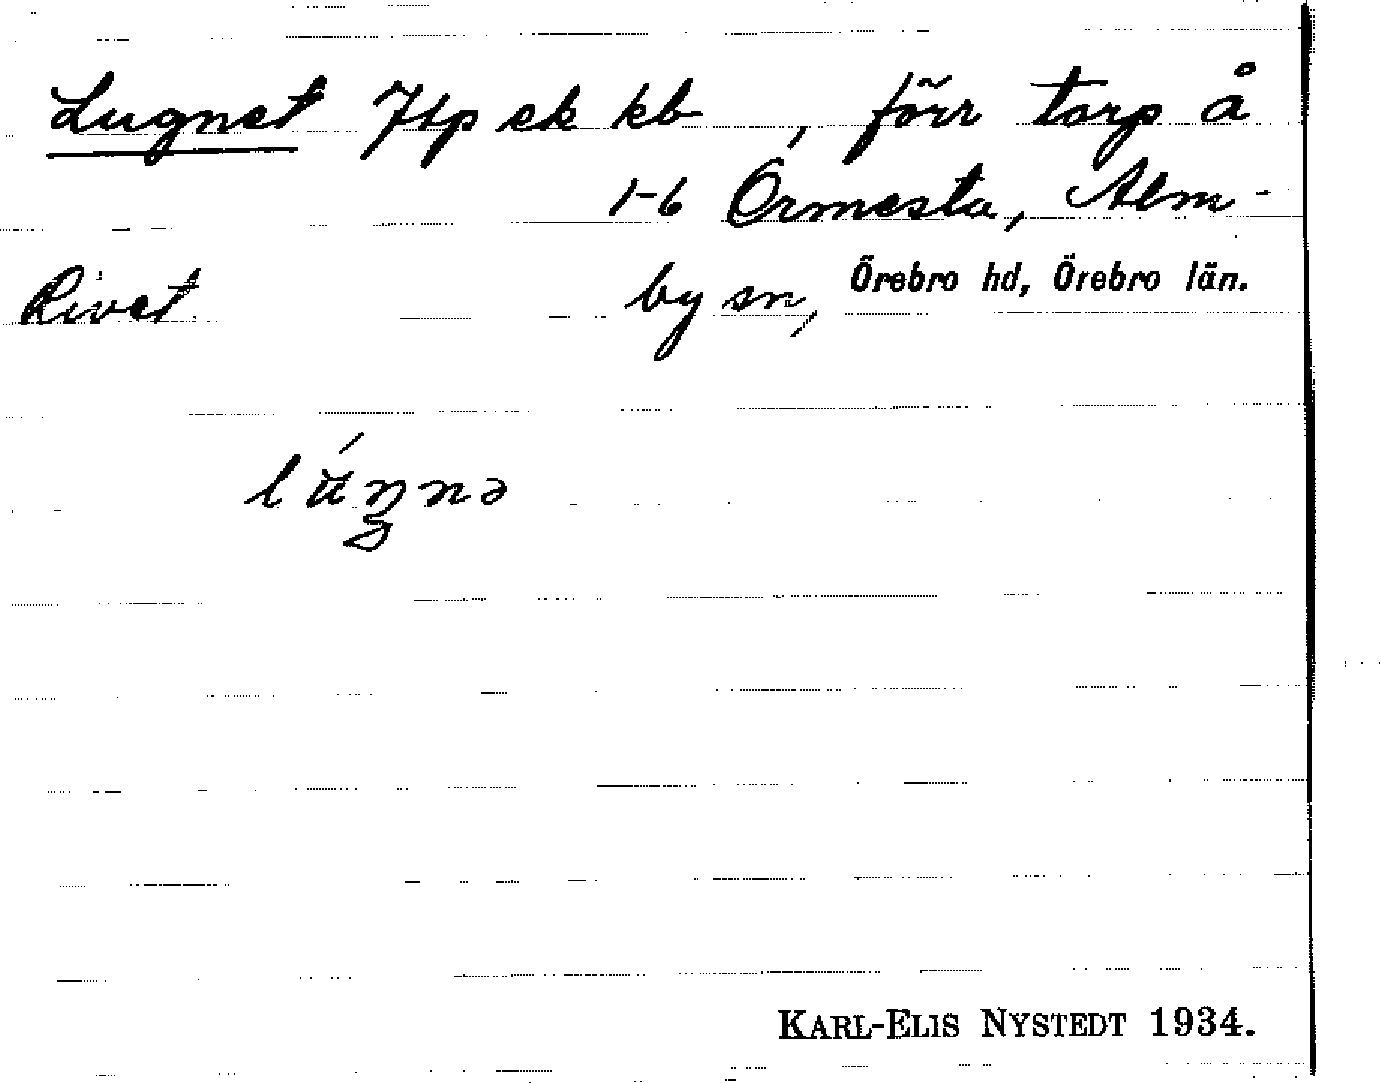 Lugnet Htp ek kb , förr torp å
1-6 Ormesta, Alm-
Rivet by sn, Örebro hd, Örebro län.
KARL-ELIS NYSTEDT 1934.